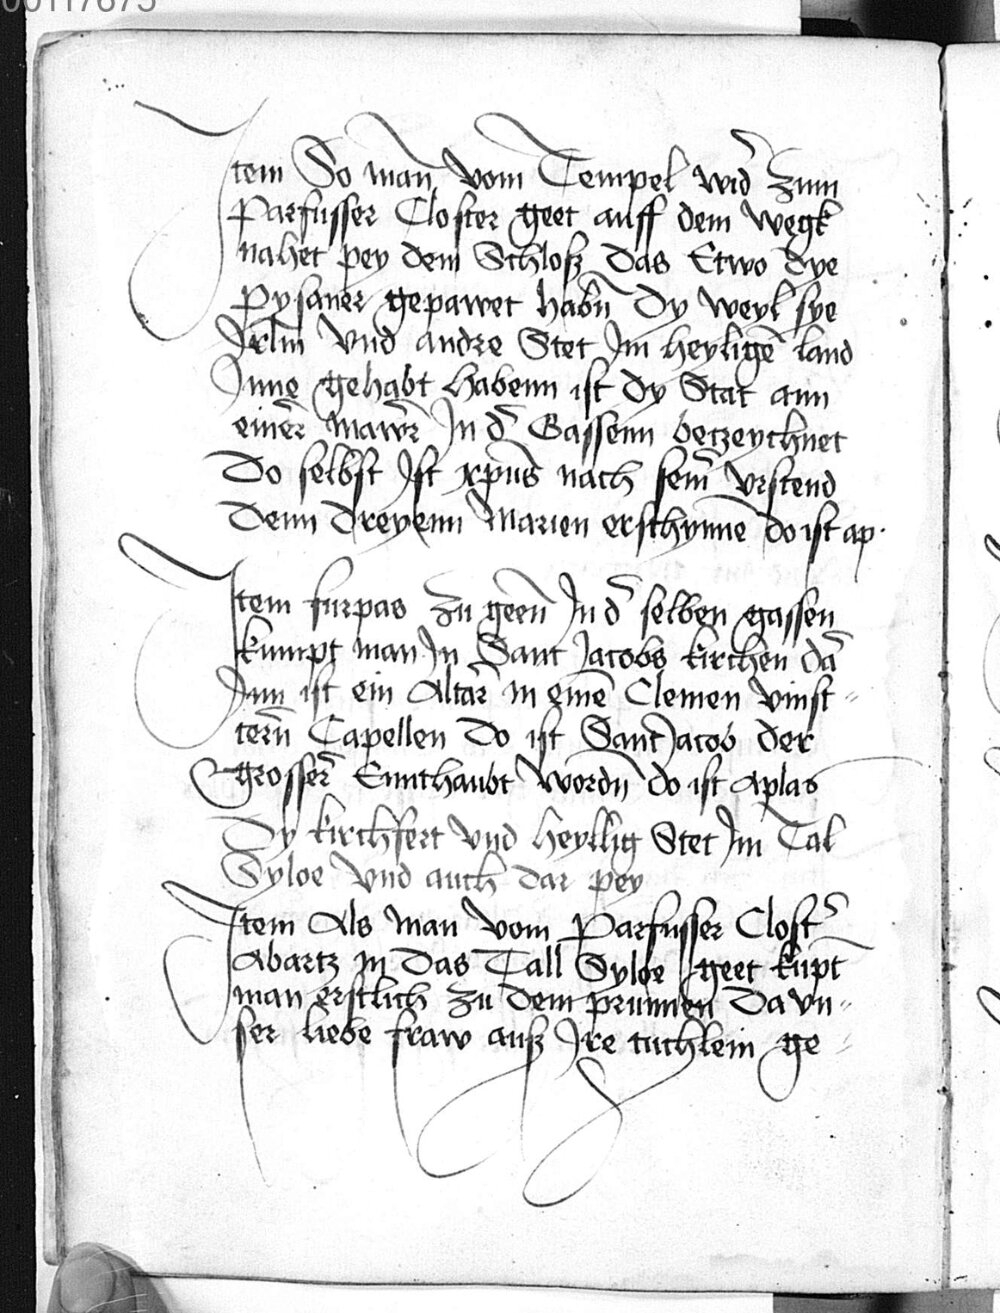 00117675
Item So man vom Tempel wid̄ zum
Parfusser Closter geet auff dem wegk
nahet pey dem Schloß das Etwo dye
Pysaner gepawet habn̄ dy weyl sye
Jrl̄m vnd andre Stet Jm heyligē land
Jnne gehabt habenn ist dy Stat ann
einer mawr̄ Jn d̄ Gassenn betzeychnet
Do selbst Jst xp̄us nach sein̄ vrstend
Denn dreyenn Marien erschynne do ist ap.
Item furpas zu geen̄ Jn d̄ selben gassen
kumpt man Jn Sant Jacobs kirchen da
Jnn ist ein Altar in einē Clemen vinst=
tern̄ Capellen Do ist Sant Jacob der
grosser̄ Ennthaubt wordn̄ do ist aplas
Dy kirchfert vnd heyllig Stet Jm Tal
Syloe vnd auch dar pey
Item Als man vom Parfusser Clost̄
Abartz in das Tall Syloe geet kūpt
man erstlich zu dem prunnen Da vn=
ser liebe fraw auß Jre tuchlein ge=